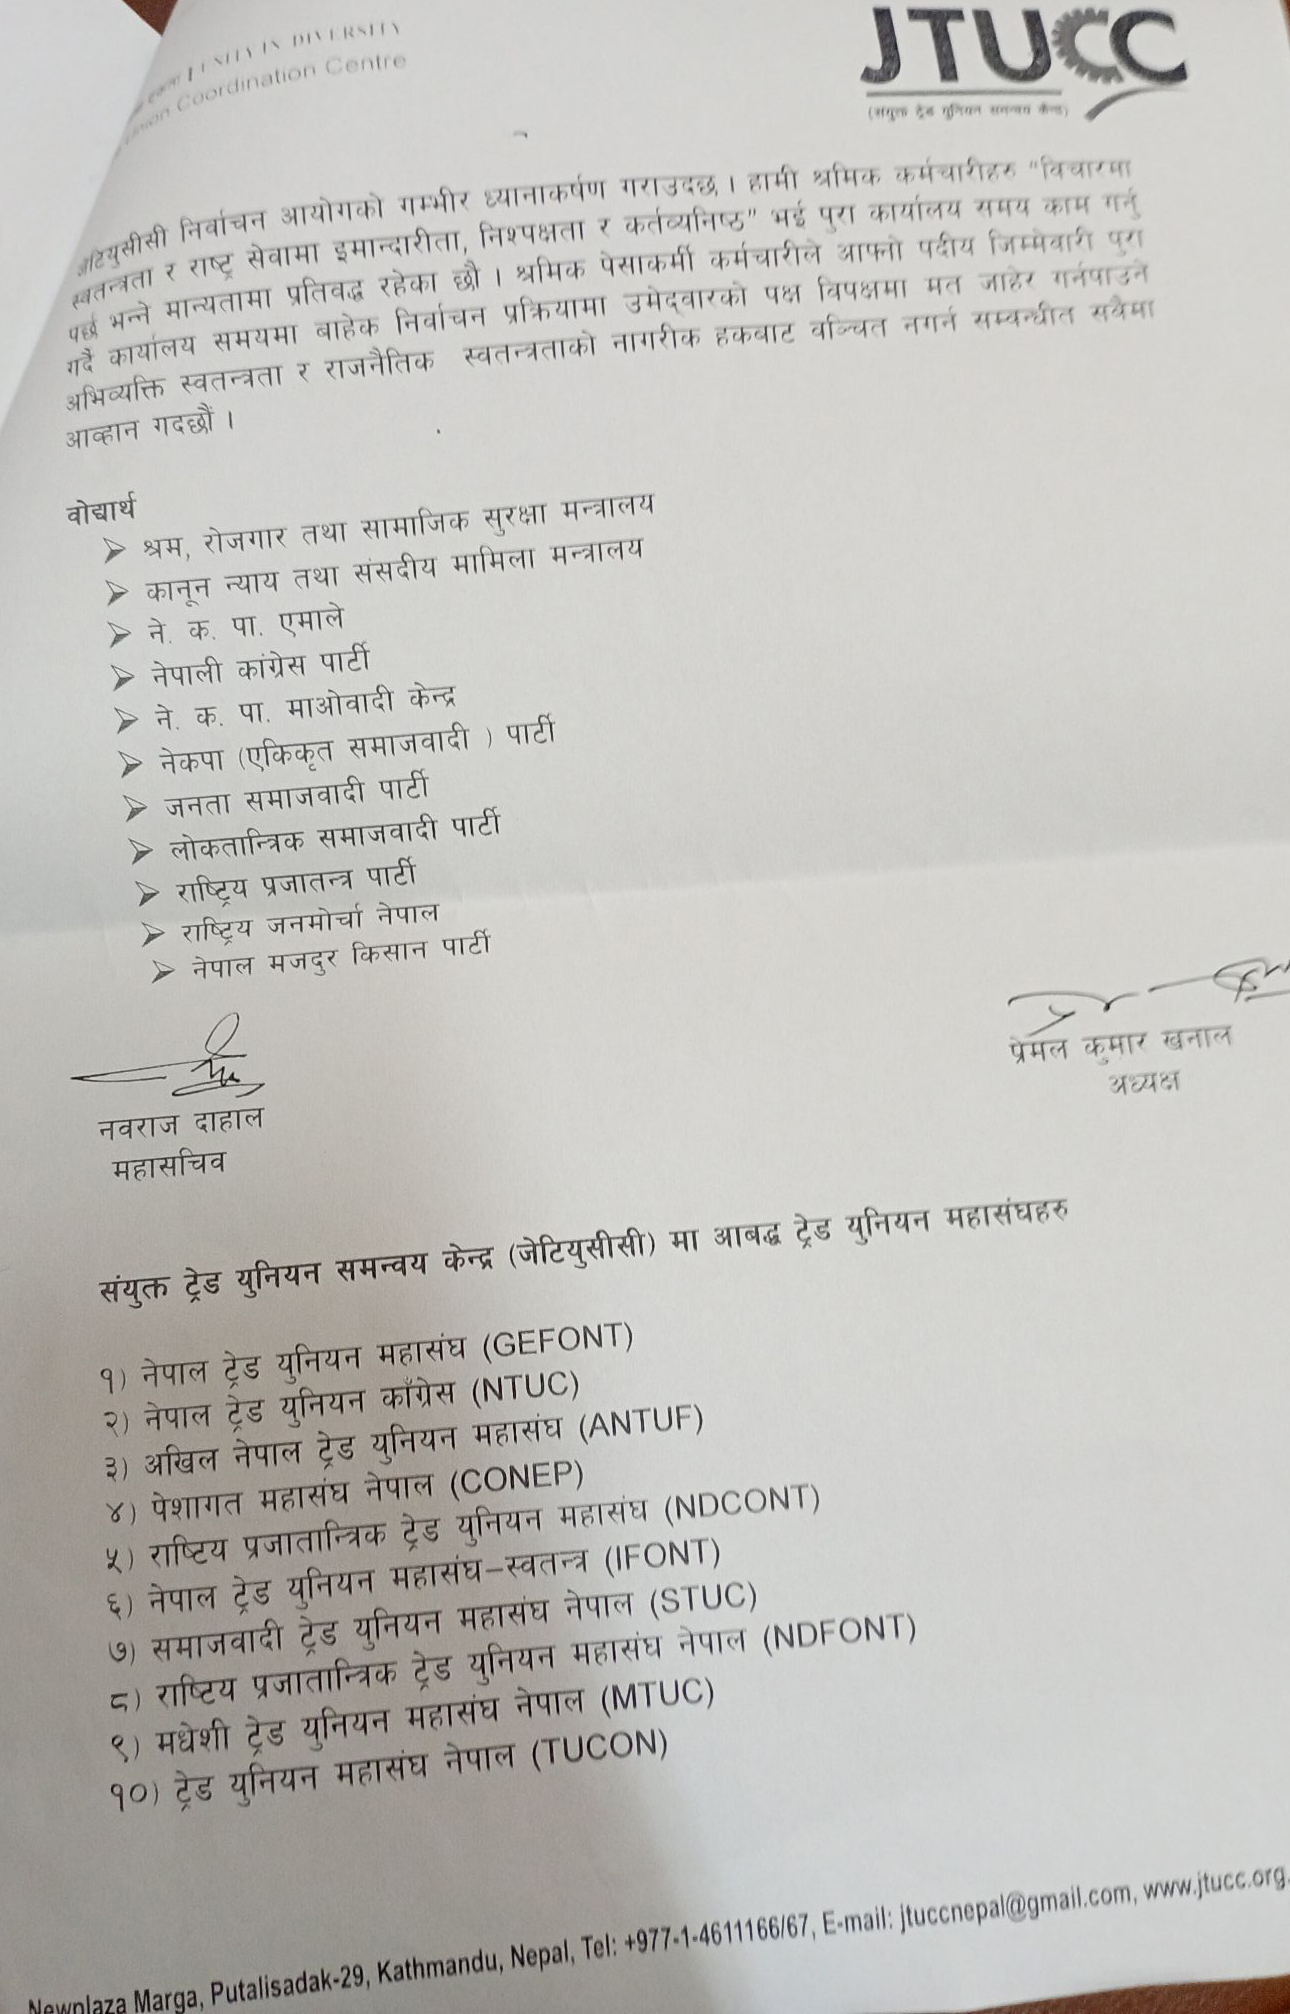 UNITY IN DIVERSITY
Coordination Centre
JTUCC
(संयुक्त ट्रेड युनियन समन्वय केन्द्र)
जेटियुसीसी निर्वाचन आयोगको गम्भीर ध्यानाकर्षण गराउदछ । हामी श्रमिक कर्मचारीहरु "विचारमा
स्वतन्त्रता र राष्ट्र सेवामा इमान्दारीता, निश्पक्षता र कर्तव्यनिष्ठ" भई पुरा कार्यालय समय काम गर्नु
पर्छ भन्ने मान्यतामा प्रतिवद्ध रहेका छौ । श्रमिक पेसाकर्मी कर्मचारीले आफ्नो पदीय जिम्मेवारी पुरा
गर्दै कार्यालय समयमा बाहेक निर्वाचन प्रक्रियामा उमेद्वारको पक्ष विपक्षमा मत जाहेर गर्नपाउने
अभिव्यक्ति स्वतन्त्रता र राजनैतिक स्वतन्त्रताको नागरीक हकबाट वञ्चित नगर्न सम्वन्धीत सवैमा
आव्हान गदछौं ।
वोद्यार्थ
➢ श्रम, रोजगार तथा सामाजिक सुरक्षा मन्त्रालय
➢ कानून न्याय तथा संसदीय मामिला मन्त्रालय
➢ ने. क. पा. एमाले
➢ नेपाली कांग्रेस पार्टी
➢ ने. क. पा. माओवादी केन्द्र
➢ नेकपा (एकिकृत समाजवादी ) पार्टी
➢ जनता समाजवादी पार्टी
➢ लोकतान्त्रिक समाजवादी पार्टी
➢ राष्ट्रिय प्रजातन्त्र पार्टी
➢ राष्ट्रिय जनमोर्चा नेपाल
➢ नेपाल मजदुर किसान पार्टी
प्रेमल कुमार खनाल
अध्यक्ष
नवराज दाहाल
महासचिव
संयुक्त ट्रेड युनियन समन्वय केन्द्र (जेटियुसीसी) मा आबद्ध ट्रेड युनियन महासंघहरु
१) नेपाल ट्रेड युनियन महासंघ (GEFONT)
२) नेपाल ट्रेड युनियन काँग्रेस (NTUC)
३) अखिल नेपाल ट्रेड युनियन महासंघ (ANTUF)
४) पेशागत महासंघ नेपाल (CONEP)
५) राष्टिय प्रजातान्त्रिक ट्रेड युनियन महासंघ (NDCONT)
६) नेपाल ट्रेड युनियन महासंघ–स्वतन्त्र (IFONT)
७) समाजवादी ट्रेड युनियन महासंघ नेपाल (STUC)
८) राष्टिय प्रजातान्त्रिक ट्रेड युनियन महासंघ नेपाल (NDFONT)
९) मधेशी ट्रेड युनियन महासंघ नेपाल (MTUC)
१०) ट्रेड युनियन महासंघ नेपाल (TUCON)
Newplaza Marga, Putalisadak-29, Kathmandu, Nepal, Tel: +977-1-4611166/67, E-mail: jtuccnepal@gmail.com, www.jtucc.org.